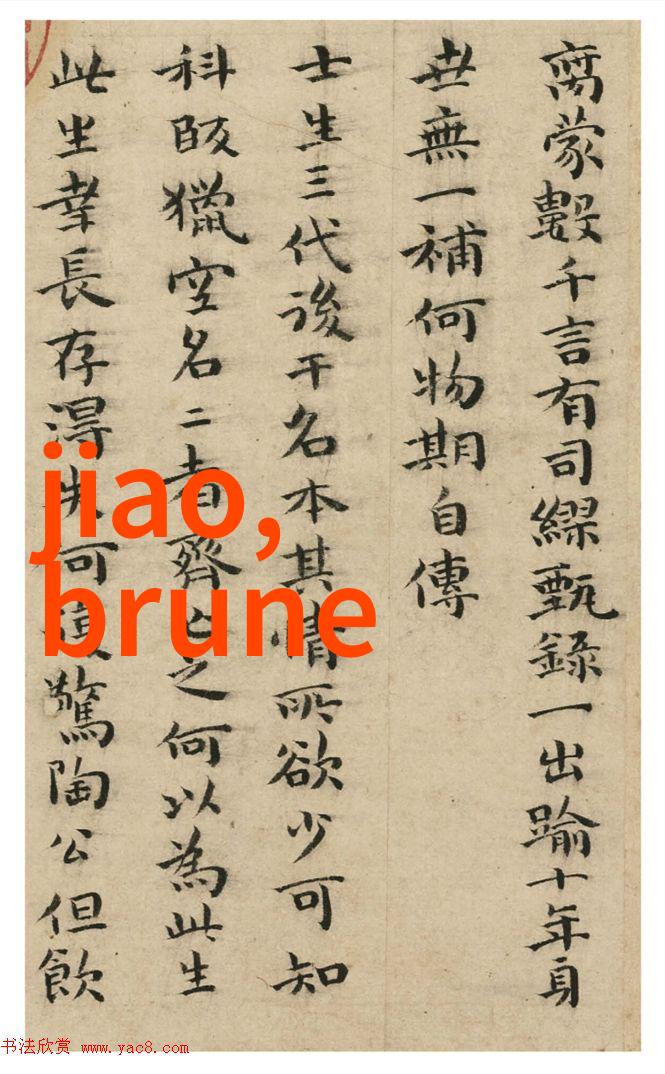 蒙數千言有司繆甄錄一出踰十年身
世無一補何物期自傳
士生三代後干名本其情所欲少可知
科獵空名二者齊亡之何以為此生
此坐幸長存淂失可復驚陶公但飲
jiao,
brune
书法欣赏 www.yac8.com